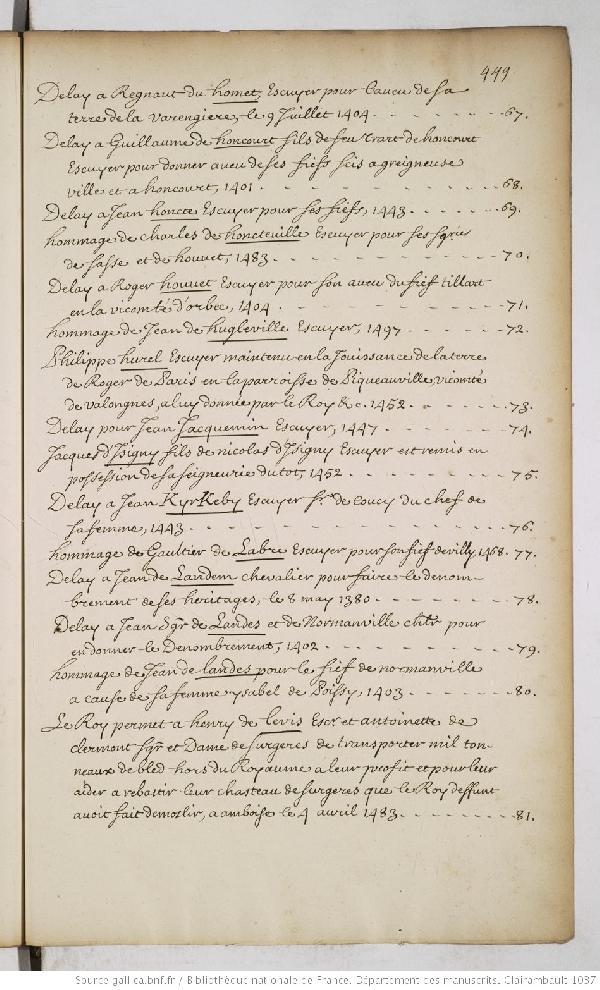 449
Delay a Regnaut du homet, Escuyer pour l'aveu de sa
terre de la varengiere, le 9 Juillet 1404 - - - - - - - 67.
Delay a Guillaume de honcourt fils de feu Trart de honcourt
Escuyer pour donner aveu de ses fiefs scis a greigneuse
ville et a honcourt, 1401 - - - - - - - 68.
Delay a Jean honcte Escuyer pour ses fiefs, 1443 - - - - - 69.
hommage de Charles de honcteville Escuyer pour ses sgries
de sasse et de houvet, 1483 - - - - - - - 70.
Delay a Roger houvet Escuyer pour son aveu du fief tillart
en la vicomté d'orbec, 1404 - - - - - - - 71.
hommage de Jean de hugleville Escuyer, 1497 - - - - - 72.
Philippe hurel Escuyer maintenu en la Jouissance de la terre
de Roger de Paris en la parroisse de Piqueauville, vicomté
de valongnes, a luy donnée par le Roy &c. 1452 - - - - - 73.
Delay pour Jean Jacquemin Escuyer, 1447 - - - - - 74.
Jacques d'Isigny fils de nicolas d'Isigny Escuyer est remis en
possession de sa seigneurie du tot, 1452 - - - - - 75.
Delay a Jean KyrKeby Escuyer sr. de coucy du chef de
sa femme, 1443 - - - - - - - 76.
hommage de Gaultier de Labre Escuyer pour son fief de villy, 1468. 77.
Delay a Jean de Landem chevalier pour faire le denom-
brement de ses heritages, le 8 may 1380 - - - - - - - 78.
Delay a Jean Sgr de Landes et de Normanville chlr pour
en donner le Denombrement, 1402 - - - - - - - 79.
hommage de Jean de landes pour le fief de normanville
a cause de sa femme ysabel de Poissy, 1403 - - - - - 80.
Le Roy permet a henry de levis Escr et antoinette de
clermont sgr et Dame de surgeres de transporter mil ton-
neaux de bled hors du Royaume a leur profit et pour leur
aider a rebastir leur chasteau de surgeres que le Roy deffunt
avoit fait demolir, a amboise le 4 avril 1483 - - - - - 81.
Source gallica.bnf.fr / Bibliothèque nationale de France. Département des manuscrits. Clairambault 1087